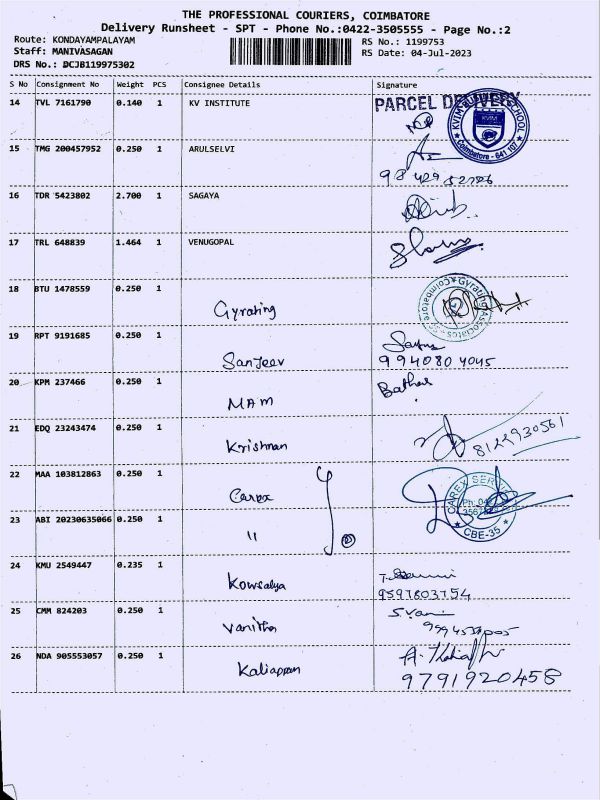 THE PROFESSIONAL COURIERS, COIMBATORE
Delivery Runsheet - SPT - Phone No.:0422-3505555 - Page No.:2
Route: KONDAYAMPALAYAM
RS No.: 1199753
Staff: MANIVASAGAN
RS Date: 04-Jul-2023
DRS No.: DCJB119975302
S No Consignment No Weight PCS Consignee Details Signature
14 TVL 7161790 0.140 1 KV INSTITUTE PARCEL DELIVERY
KVIM SCHOOL
Coimbatore - 641 107
15 TMG 200457952 0.250 1 ARULSELVI
16 TDR 5423802 2.700 1 SAGAYA
17 TRL 648839 1.464 1 VENUGOPAL
18 BTU 1478559 0.250 1
Gyrating
Gyrating Associates Coimbatore
19 RPT 9191685 0.250 1
Sanjeev 9940804045
20 KPM 237466 0.250 1
MAM
21 EDQ 23243474 0.250 1
Krishnan 8122930561
22 MAA 103812863 0.250 1
Carex
CAREX SERVI
CBE-35
23 ABI 20230635066 0.250 1
"
2
24 KMU 2549447 0.235 1
Kowsalya 9597803754
25 CMM 824203 0.250 1
Vanitha S.Vani
26 NDA 905553057 0.250 1
Kaliappan 9791920458